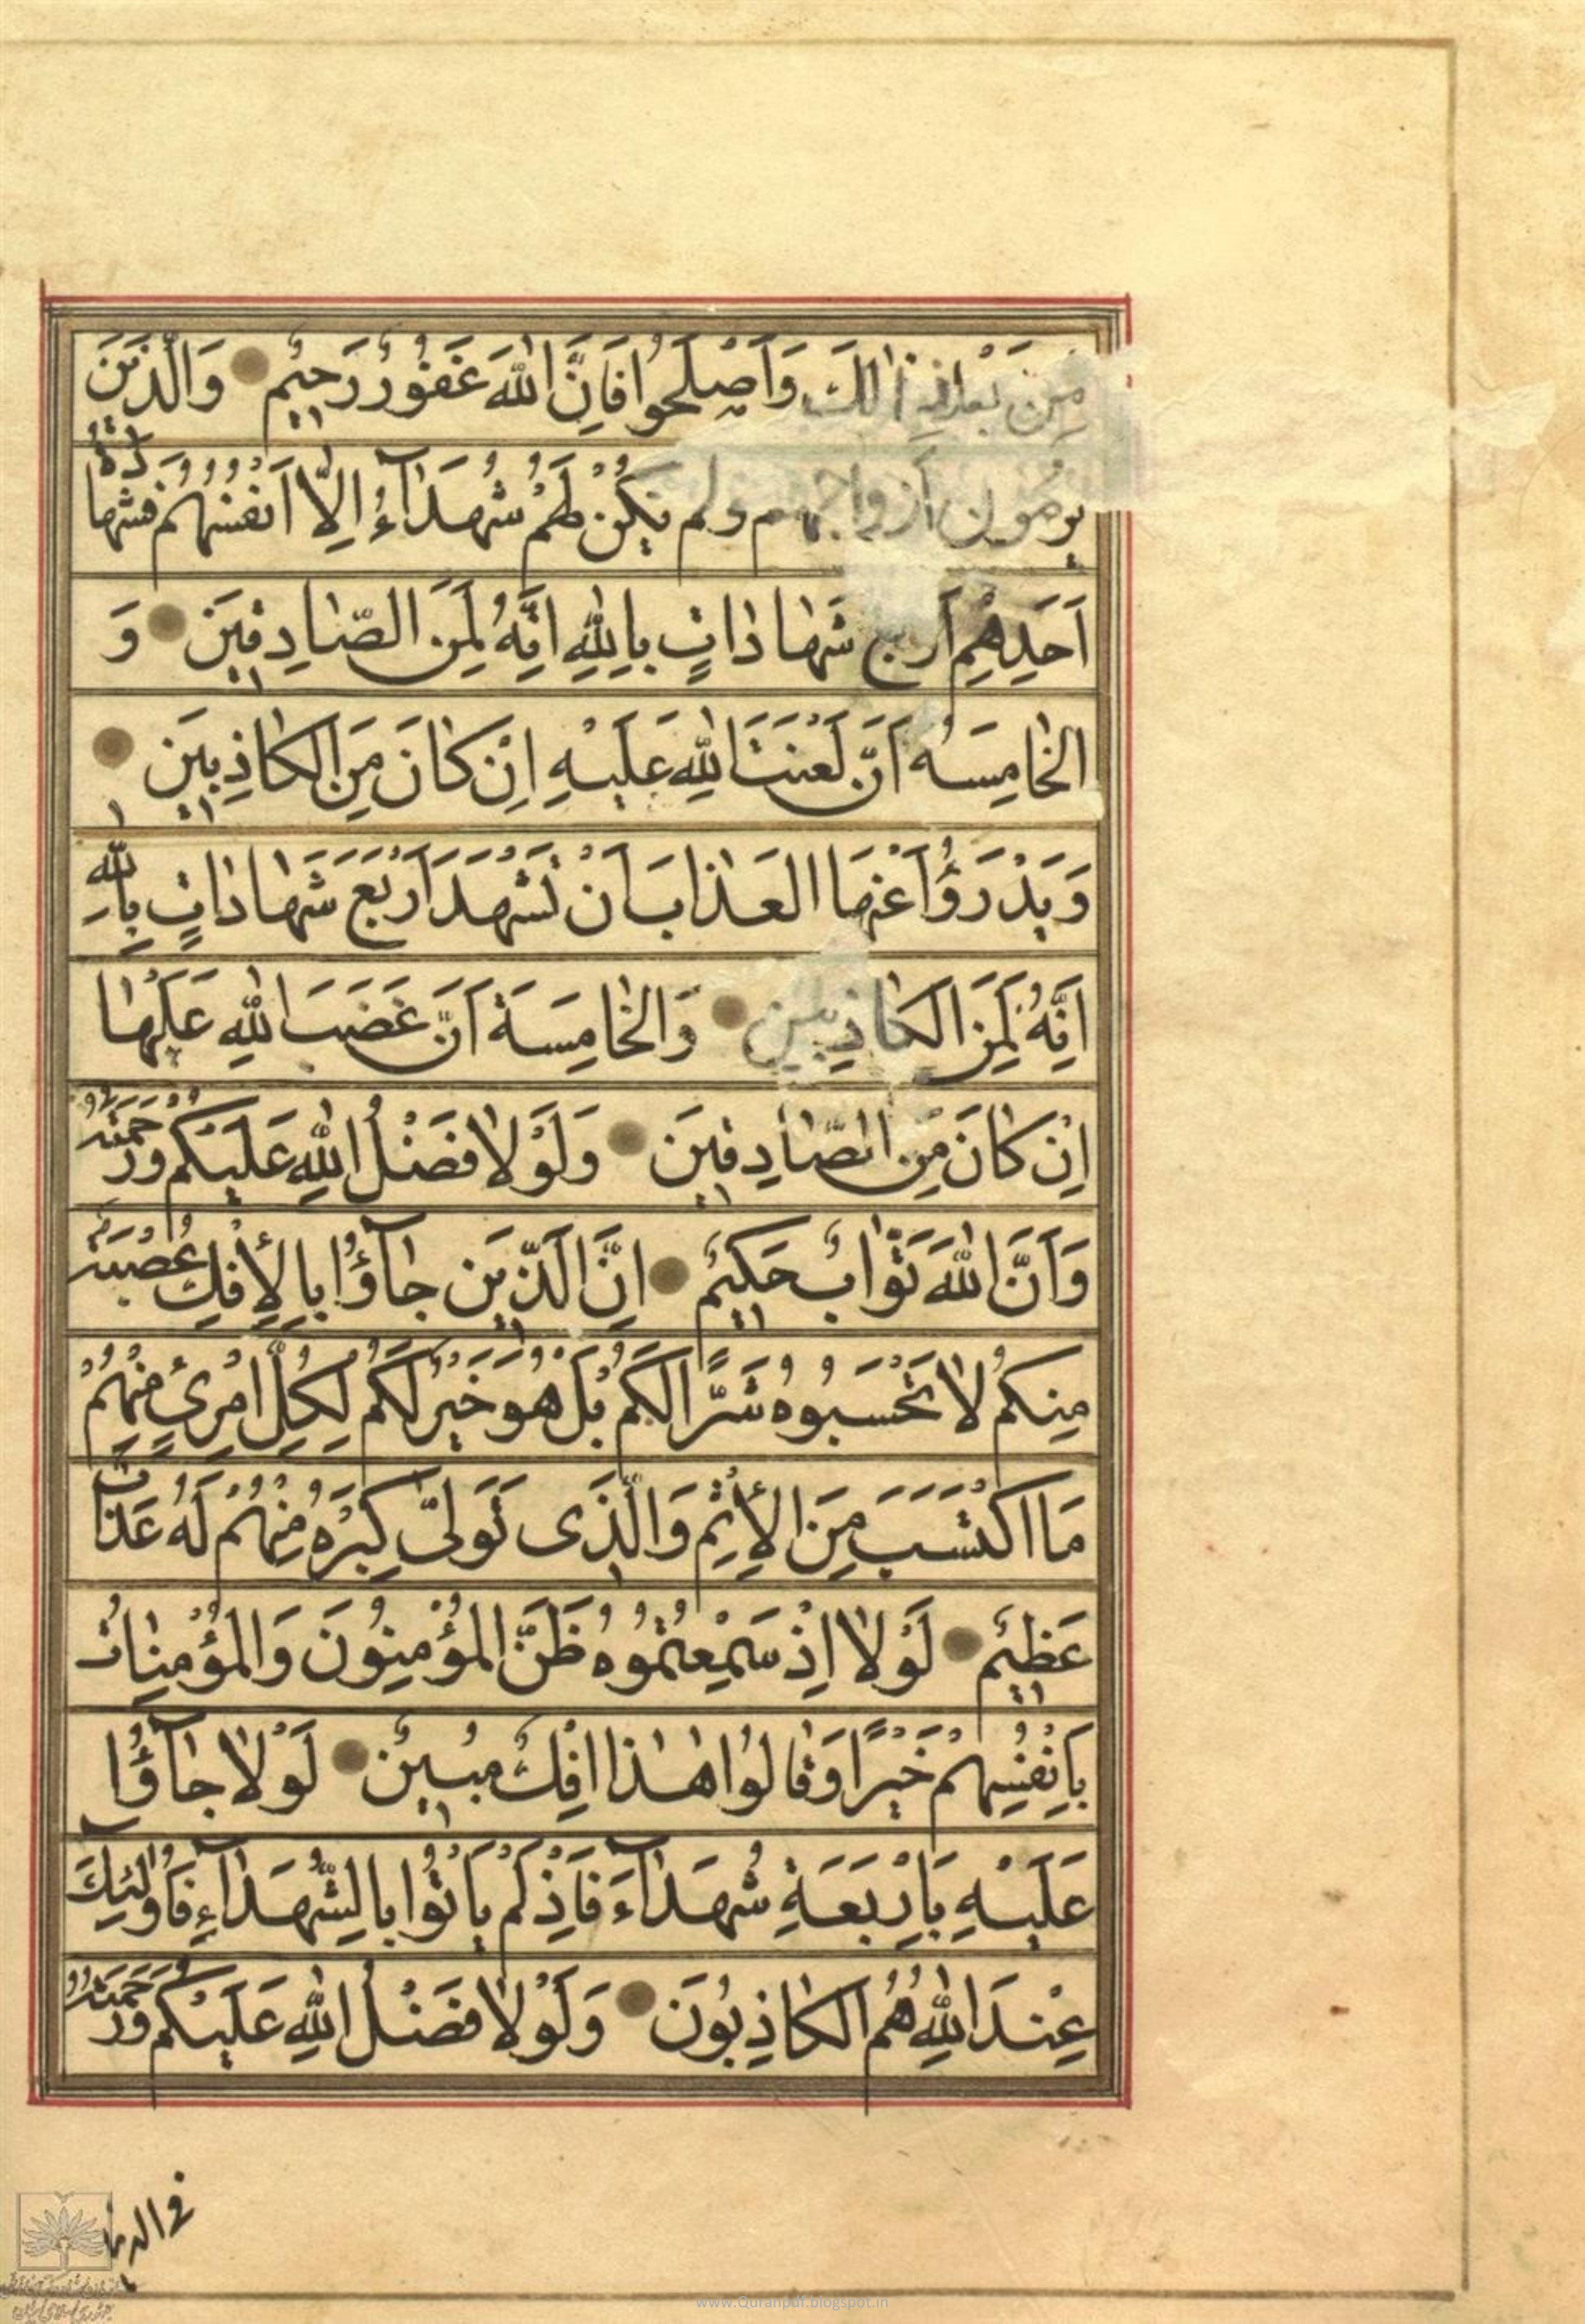 مِنْ بَعْدِ ذٰلِكَ وَاَصْلَحُوا فَاِنَّ اللّٰهَ غَفُورٌ رَحيٖمٌ وَالَّذيٖنَ
يَرْمُونَ اَزْواجَهُمْ وَلَمْ يَكُنْ لَهُمْ شُهَدٰٓاءُ اِلّٰا اَنْفُسُهُمْ فَشَهٰادَةُ
اَحَدِهِمْ اَرْبَعُ شَهٰادٰاتٍ بِاللّٰهِ اِنَّهُ لَمِنَ الصّٰادِقيٖنَ وَ
الخٰامِسَةُ اَنَّ لَعْنَتَ اللّٰهِ عَلَيْهِ اِنْ كٰانَ مِنَ الكٰاذِبيٖنَ
وَيَدْرَؤُا عَنْهَا العَذٰابَ اَنْ تَشْهَدَ اَرْبَعَ شَهٰادٰاتٍ بِاللّٰهِ
اِنَّهُ لَمِنَ الكٰاذِبيٖنَ وَالخٰامِسَةَ اَنَّ غَضَبَ اللّٰهِ عَلَيْهٰا
اِنْ كٰانَ مِنَ الصّٰادِقيٖنَ وَلَوْلٰا فَضْلُ اللّٰهِ عَلَيْكُمْ وَرَحْمَتُهُ
وَاَنَّ اللّٰهَ تَوّٰابٌ حَكيٖمٌ اِنَّ الَّذيٖنَ جٰآؤُا بِالْاِفْكِ عُصْبَةٌ
مِنْكُمْ لٰا تَحْسَبُوهُ شَرًّا لَكُمْ بَلْ هُوَ خَيْرٌ لَكُمْ لِكُلِّ امْرِئٍ مِنْهُمْ
مَا اكْتَسَبَ مِنَ الْاِثْمِ وَالَّذٖى تَوَلّٰى كِبْرَهُ مِنْهُمْ لَهُ عَذٰابٌ
عَظيٖمٌ لَوْلٰا اِذْ سَمِعْتُمُوهُ ظَنَّ المُؤْمِنُونَ وَالمُؤْمِنٰاتُ
بِاَنْفُسِهِمْ خَيْرًا وَقٰالُوا هٰذٰا اِفْكٌ مُبيٖنٌ لَوْلٰا جٰآؤُا
عَلَيْهِ بِاَرْبَعَةِ شُهَدٰٓاءَ فَاِذْ لَمْ يَاْتُوا بِالشُّهَدٰٓاءِ فَاُولٰٓئِكَ
عِنْدَ اللّٰهِ هُمُ الكٰاذِبُونَ وَلَوْلٰا فَضْلُ اللّٰهِ عَلَيْكُمْ وَرَحْمَتُهُ
فى الدنيا
www.Quranpdf.blogspot.in